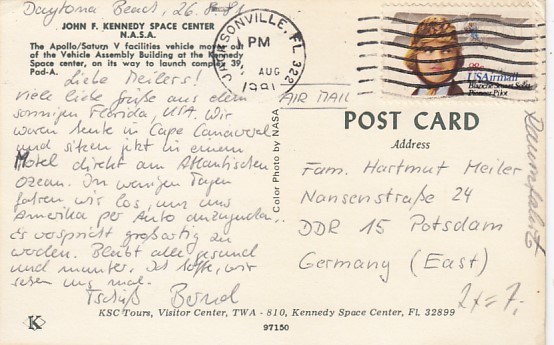 Daytona Beach, 26.8.81
JOHN F. KENNEDY SPACE CENTER
N.A.S.A.
The Apollo/Saturn V facilities vehicle moves out
of the Vehicle Assembly Building at the Kennedy
Space center, on its way to launch complex 39,
Pad-A.
Liebe Meilers!
Viele liebe Grüße aus dem
sonnigen Florida, USA. Wir
waren heute in Cape Canaveral
und sitzen jetzt in einem
Motel direkt am Atlantischen
Ozean. In wenigen Tagen
fahren wir los, um uns
Amerika per Auto anzugucken.
Es verspricht großartig zu
werden. Bleibt alle gesund
und munter. Ich hoffe, wir
sehen uns mal.
Tschüß Bernd
JACKSONVILLE, FL 322
PM
AUG
1981
28c
USAirmail
Blanche Stuart Scott
Pioneer Pilot
AIR MAIL
Color Photo by NASA
POST CARD
Address
Fam. Hartmut Meiler
Nansenstraße 24
DDR 15 Potsdam
Germany (East)
Raumfahrt
2x=7,-
K
KSC Tours, Visitor Center, TWA - 810, Kennedy Space Center, FL 32899
97150